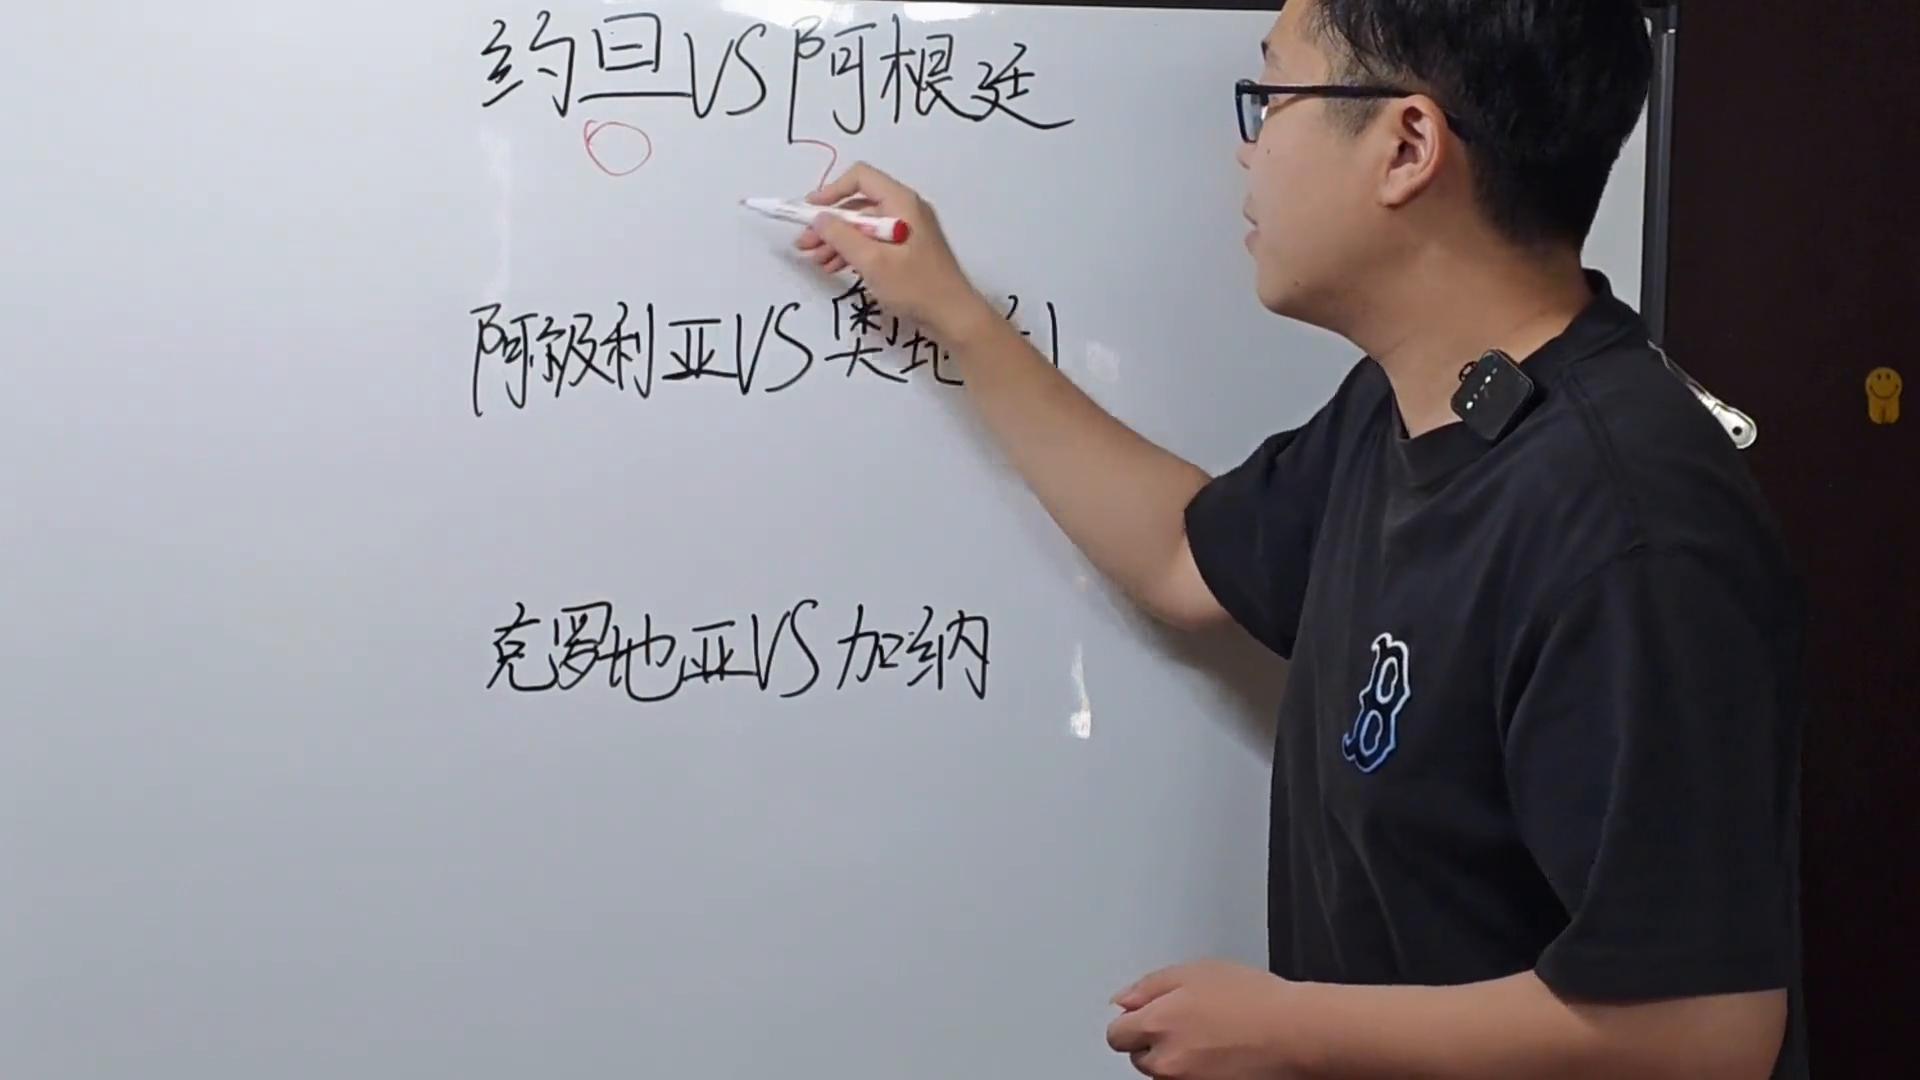 约旦VS阿根廷
0
阿级利亚VS奥地利
克罗地亚VS加纳
B